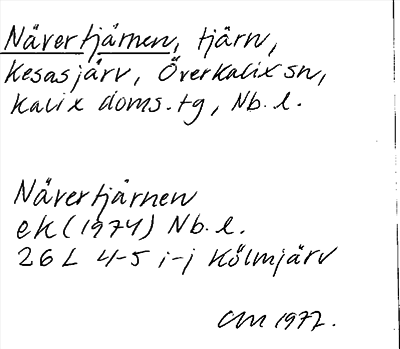 Nävertjärnen, tjärn,
Kesasjärv, Överkalix sn,
Kalix doms.tg, Nb.l.
Nävertjärnen
ek (1974) Nb.l.
26L 4-5 i-j Kölmjärv
CM 1977.